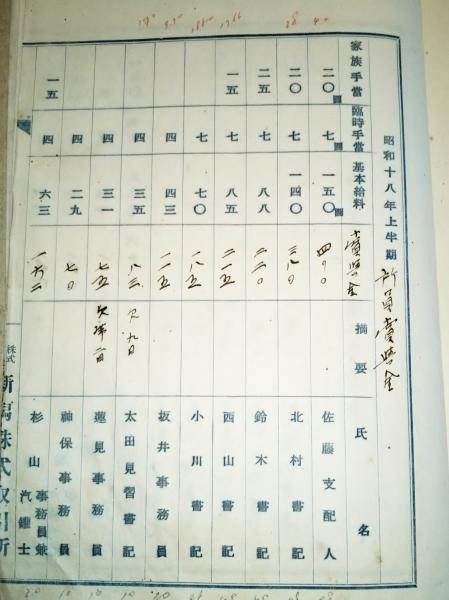 昭和十八年上半期 所員賞與金
家族手當 臨時手當 基本給料 賞與金 摘要 氏名
二〇圓 七圓 一五〇圓 四〇〇 佐藤支配人
二〇 七 一四〇 三八〇 北村書記
二五 七 八八 二二〇 鈴木書記
一五 七 八五 二一五 西山書記
七 七〇 一八五 小川書記
四 四三 一一五 坂井事務員
四 三五 八三 欠九日 太田見習書記
四 三一 七五 蓮見事務員
四 二九 七〇 神保事務員
一五 四 六三 一六二 杉山事務員兼汽罐士
株式 新潟株式取引所